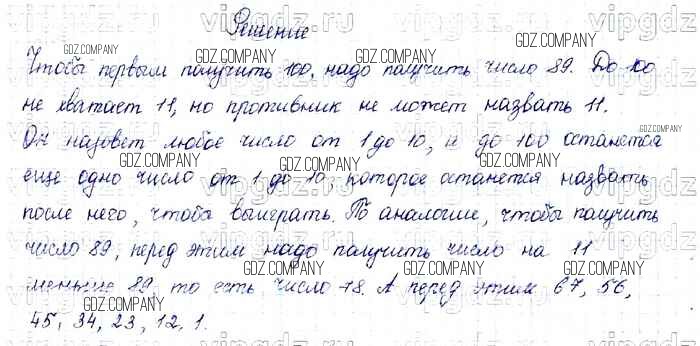 Решение
Чтобы первым получить 100, надо получить число 89. До 100
не хватает 11, но противник не может назвать 11.
Он назовет любое число от 1 до 10, и до 100 останется
еще одно число от 1 до 10, которое останется назвать
после него, чтобы выиграть. По аналогии, чтобы получить
число 89, перед этим надо получить число на 11
меньше 89, то есть число 78. А перед этим 67, 56,
45, 34, 23, 12, 1.
vipgdz.ru
GDZ.COMPANY